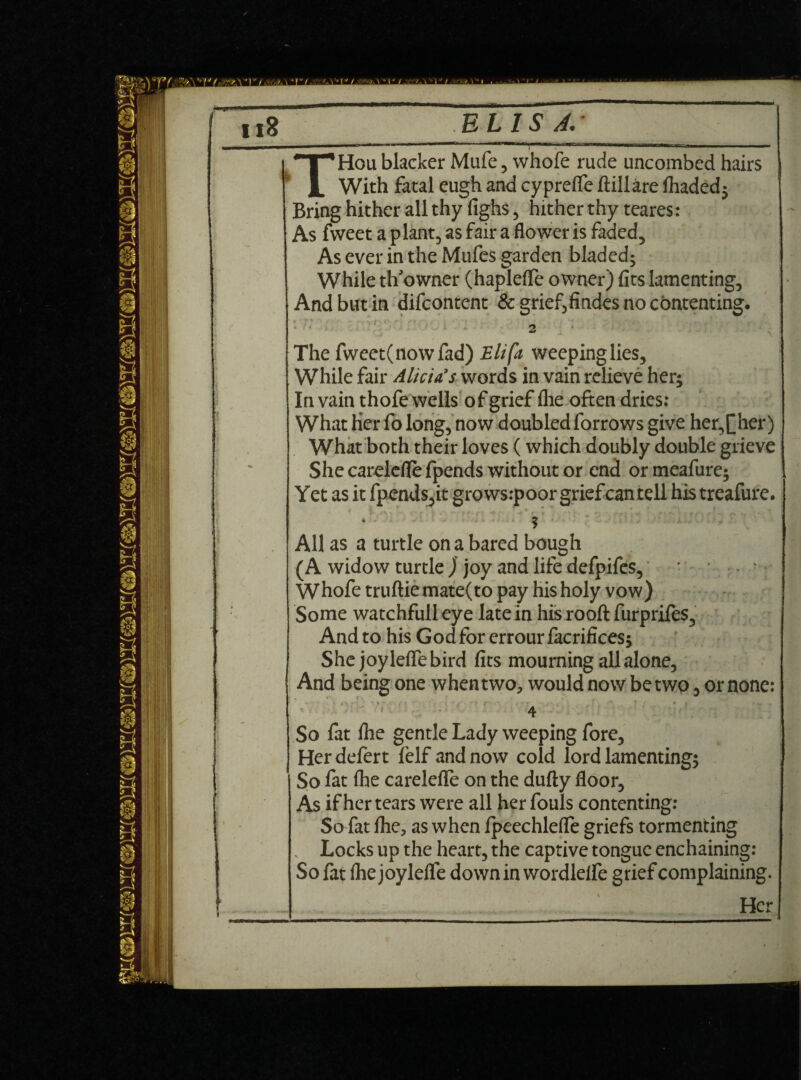 118 ELISA.
THou blacker Muſe, whoſe rude uncombed hairs
With fatal eugh and cypreſſe ſtill are ſhaded;
Bring hither all thy ſighs, hither thy teares:
As ſweet a plant, as fair a flower is faded,
As ever in the Muſes garden bladed;
While th'owner (hapleſſe owner) ſits lamenting,
And but in diſcontent & grief, findes no contenting.
2
The ſweet (now ſad) Eliſa weeping lies,
While fair Alicia's words in vain relieve her;
In vain thoſe wells of grief ſhe often dries:
What her ſo long, now doubled ſorrows give her, [her)
What both their loves ( which doubly double grieve
She careleſſe ſpends without or end or meaſure;
Yet as it ſpends, it grows: poor grief can tell his treaſure.
3
All as a turtle on a bared bough
(A widow turtle ) joy and life deſpiſes,
Whoſe truſtie mate (to pay his holy vow)
Some watchfull eye late in his rooſt ſurpriſes,
And to his God for errour ſacrifices;
She joyleſſe bird ſits mourning all alone,
And being one when two, would now be two, or none:
4
So ſat ſhe gentle Lady weeping ſore,
Her deſert ſelf and now cold lord lamenting;
So ſat ſhe careleſſe on the duſty floor,
As if her tears were all her ſouls contenting:
So ſat ſhe, as when ſpeechleſſe griefs tormenting
Locks up the heart, the captive tongue enchaining:
So ſat ſhe joyleſſe down in wordleſſe grief complaining.
Her